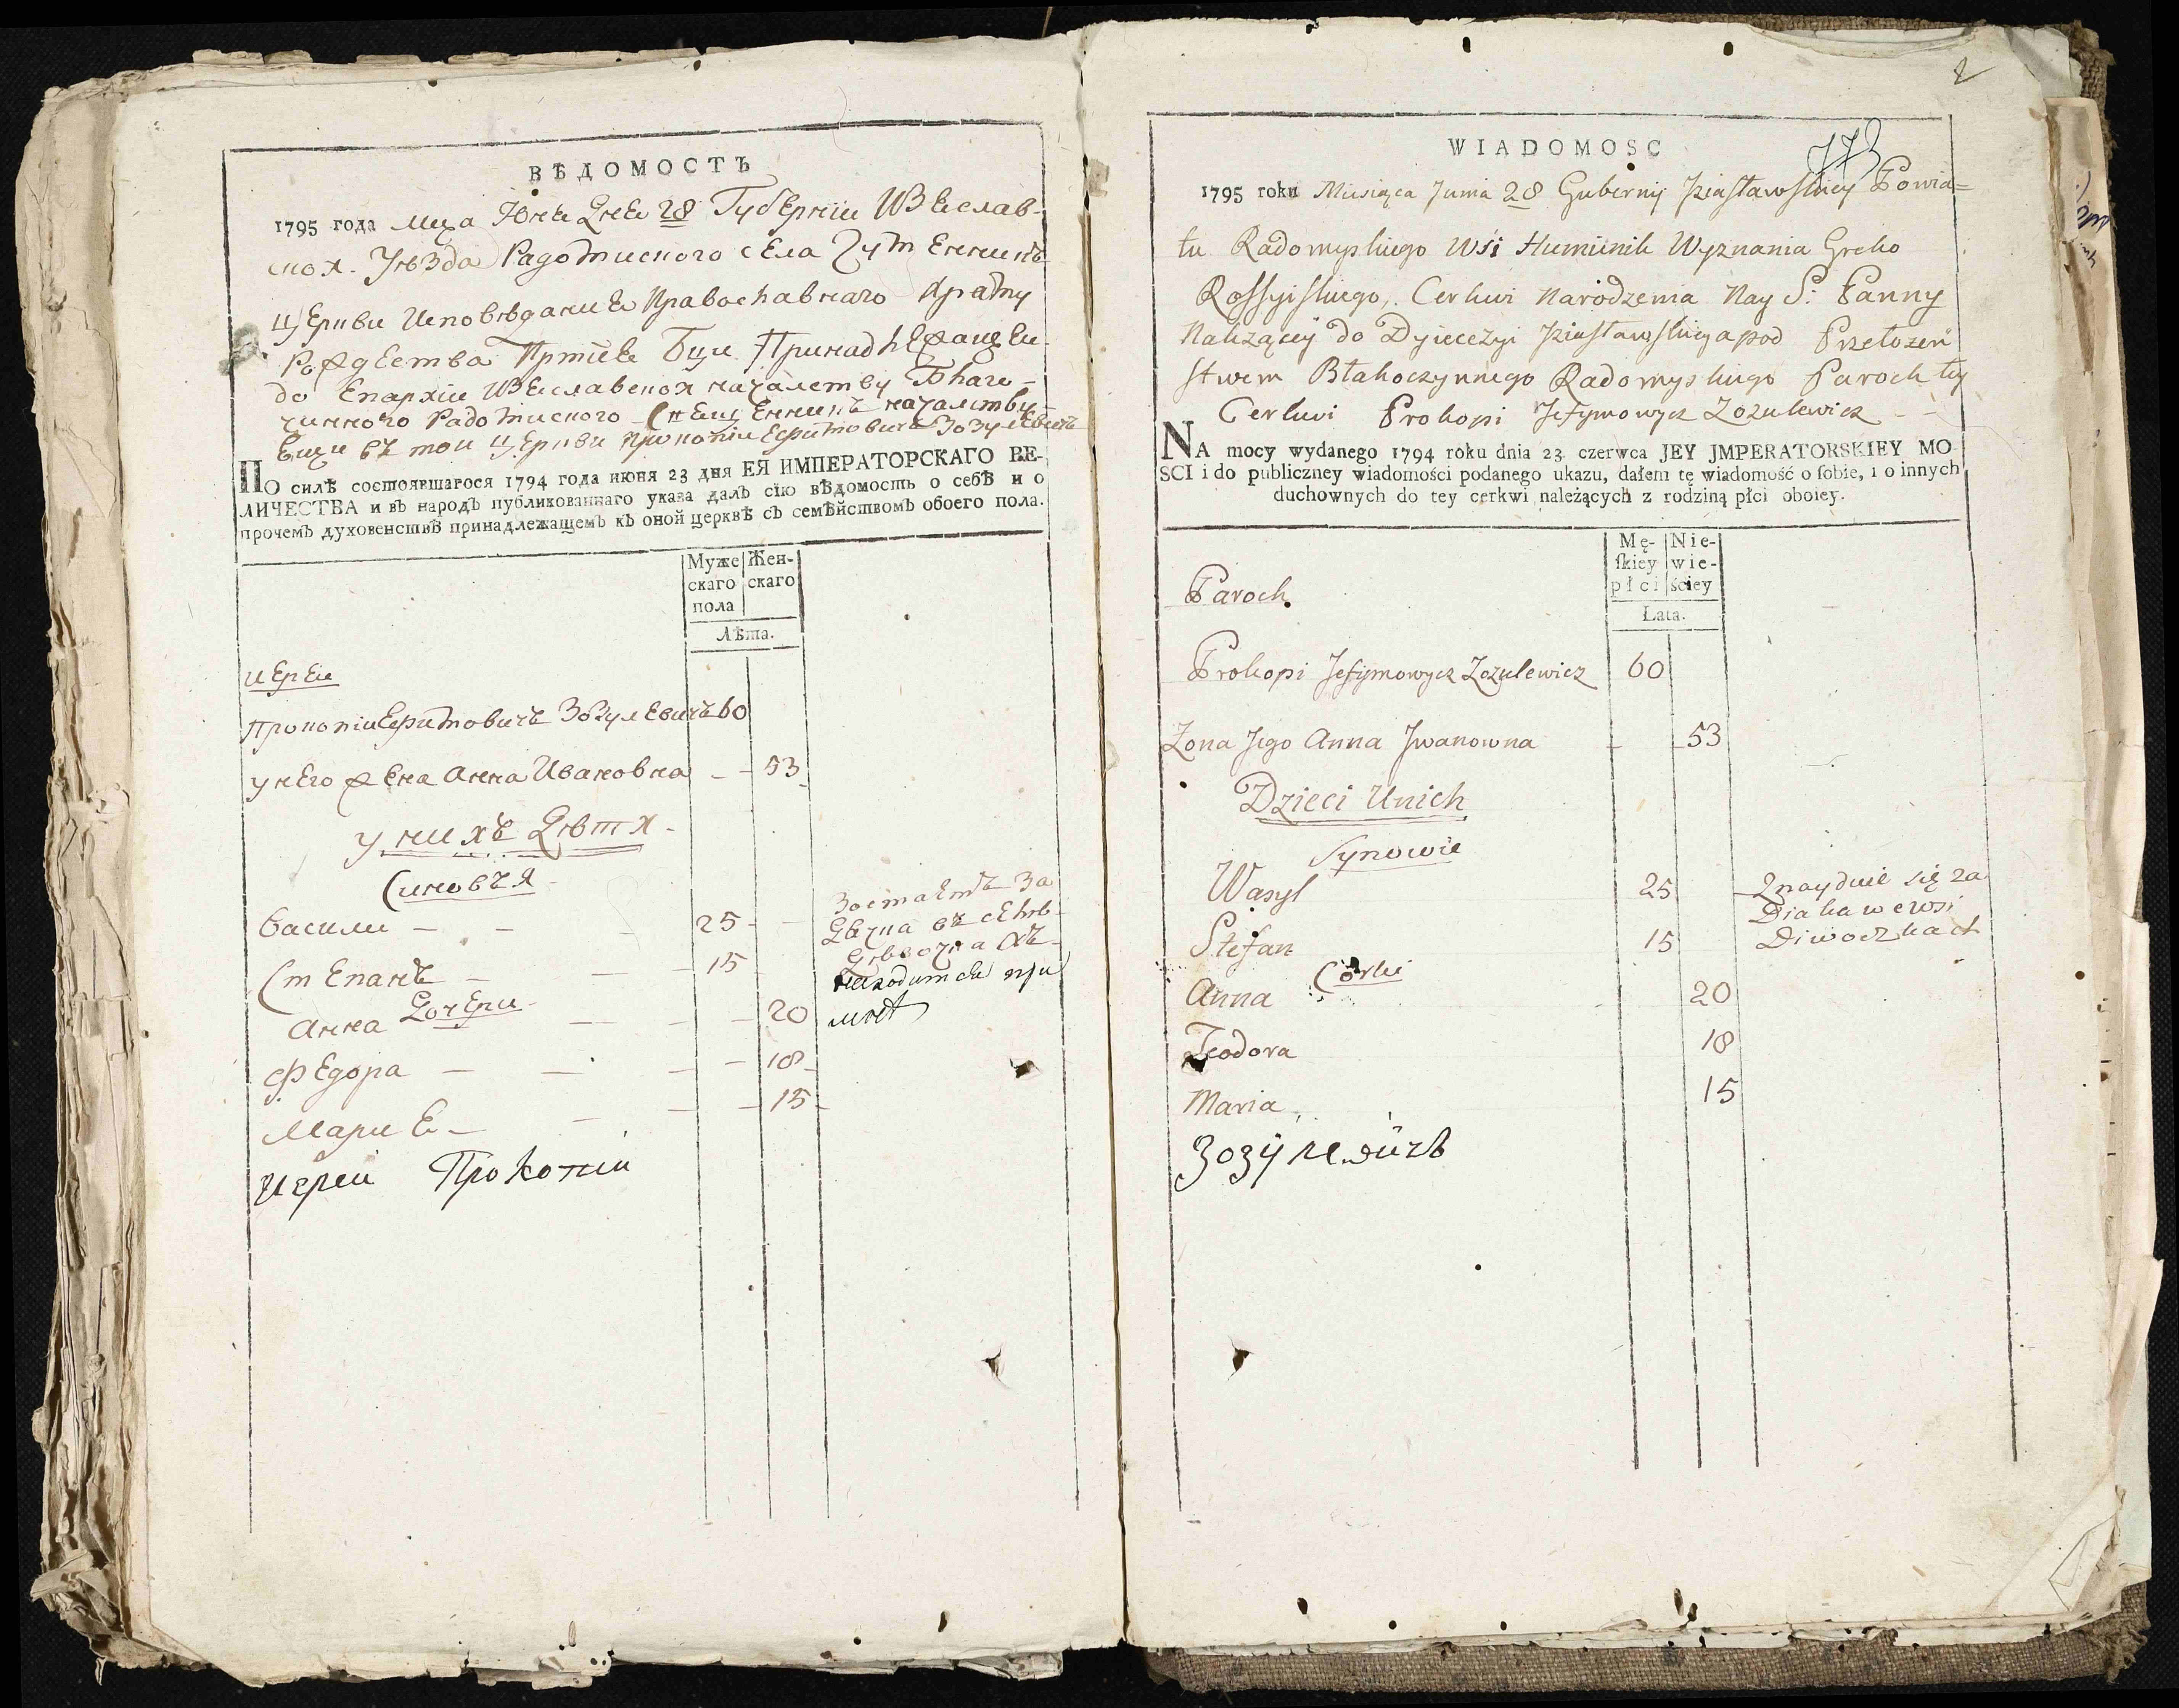 ВѢДОМОСТЪ
1795 года Мца Юня Дня 28 Губернїи Изяслав-
ской Уѣзда Радомиского села Гуменникъ
Церкви Исповѣдания Православнаго Храму
Рождества Бцы Принадлежащеи
до Епархїи Изяславской началству Благо-
чинного Радомиского началству-
ющи въ тои Церкви Прокопїи Ефимовичъ Зозулевичъ
ПО силѣ состоявшагося 1794 года июня 23 дня ЕЯ ИМПЕРАТОРСКАГО ВЕ-
ЛИЧЕСТВА и въ народъ публикованнаго указа далъ сїю вѣдомость о себѣ и о
прочемъ духовенствѣ принадлежащемъ къ оной церквѣ съ семѣйствомъ обоего пола.
Муже Жен-
скаго скаго
пола
Лѣта.
иереи
Прокопїи Ефимовичъ Зозулевичъ 60
у него жена Анна Ивановна 53
у нихъ Дѣти
Синовья
Василии 25 Зостаетъ За
Дяка въ селѣ
Дѣвочкахъ
Степанъ 15 находится при
мнѣ
Дочери
Анна 20
Федора 18
Мария 15
Иереи Прокопїи
2
773
WIADOMOSC
1795 roku Miesiąca Junia 28 Gubernij Iziasławskiey Powia=
tu Radomyskiego Wsi Humienik Wyznania Greko
Rossyiskiego, Cerkwi Narodzenia Nay S: Panny
Należącey do Dyiecezyi Iziasławskiey a pod Przełożeń
stwem Błahoczynnego Radomyskiego Paroch tey
Cerkwi Prokopi Jefymowycz Zozulewicz
NA mocy wydanego 1794 roku dnia 23 czerwca JEY JMPERATORSKIEY MO
SCI i do publiczney wiadomości podanego ukazu, dałem tę wiadomość o sobie, i o innych
duchownych do tey cerkwi należących z rodziną płci oboiey.
Mę- Nie-
skiey wie-
płci ściey
Lata.
Paroch
Prokopi Jefymowycz Zozulewicz 60
Zona Jego Anna Jwanowna 53
Dzieci Unich
Synowie
Wasyl 25 Znayduie się za
Diaka we wsi
Diwoczkach
Stefan 15
Corki
Anna 20
Teodora 18
Maria 15
Зозулевичъ